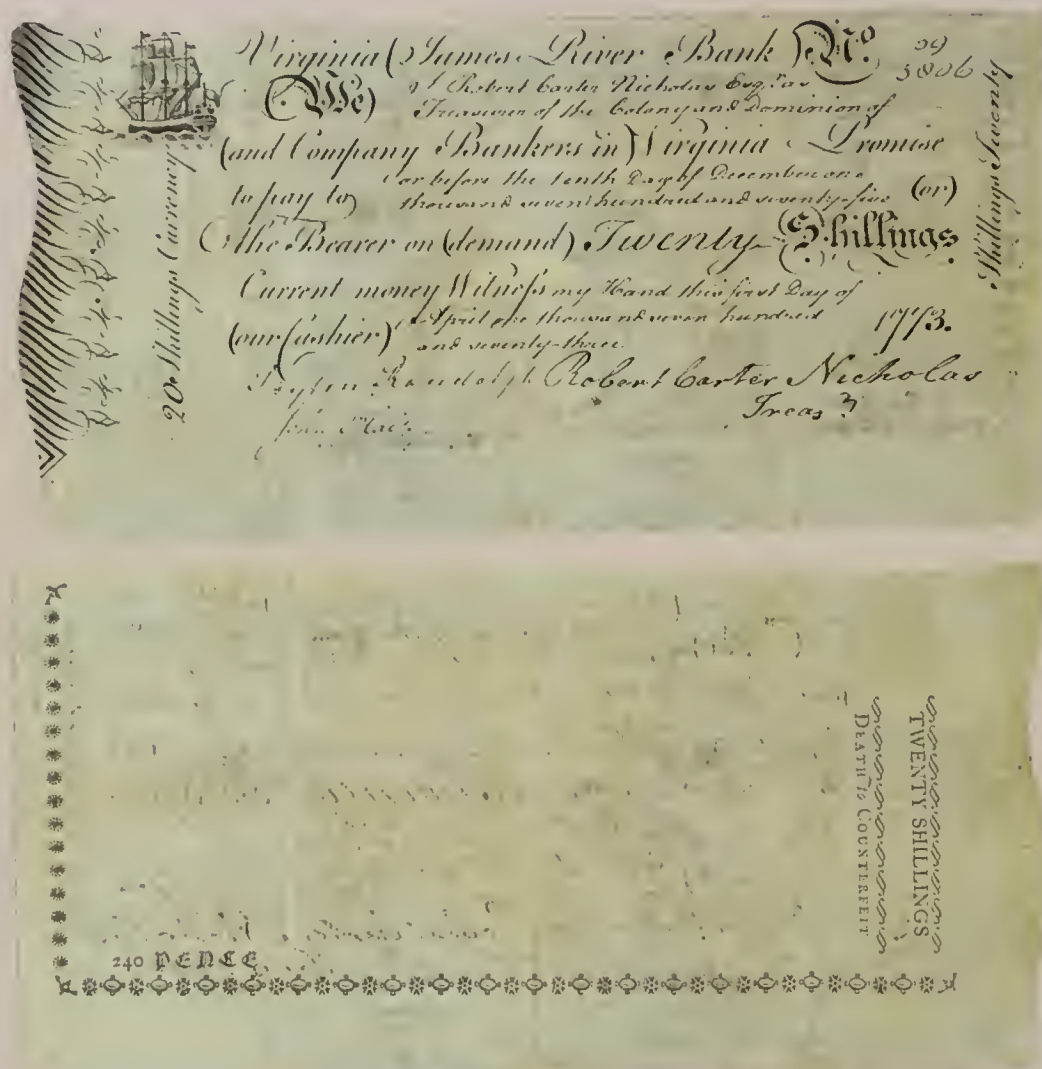 Virginia (James River Bank) No. 5806
(We) I Robert Carter Nicholas Esqr. as
Treasurer of the Colony and Dominion of
(and Company Bankers in) Virginia Promise
to pay to or before the tenth Day of December one
thousand seven hundred and seventy-five (or)
the Bearer on (demand) Twenty Shillings
Current money Witness my Hand this first Day of
(our Cashier) April one thousand seven hundred
and seventy-three. 1773.
Peyton Randolph Robert Carter Nicholas
Treasr
20 Shillings Currency
Shillings Twenty
TWENTY SHILLINGS
DEATH to COUNTERFEIT
240 PENCE